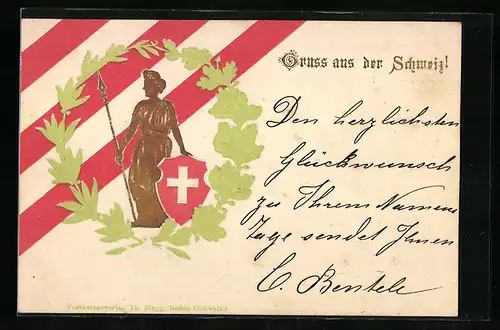 Gruss aus der Schweiz!
Den herzlichsten
Glückwunsch
zu Ihrem Namens
Tage sendet Ihnen
C. Bentele
Postkartenverlag Th. Zingg, Baden (Schweiz)